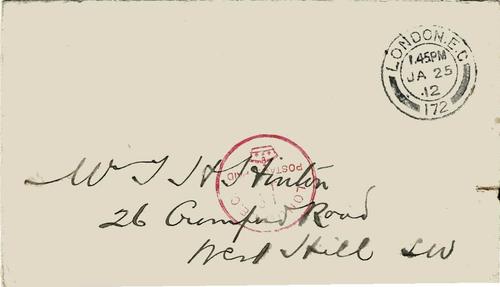 LONDON.E.C
1.45PM
JA 25
12
172
POSTAGE PAID
LON
E C
26 Cromford Road
West Hill SW